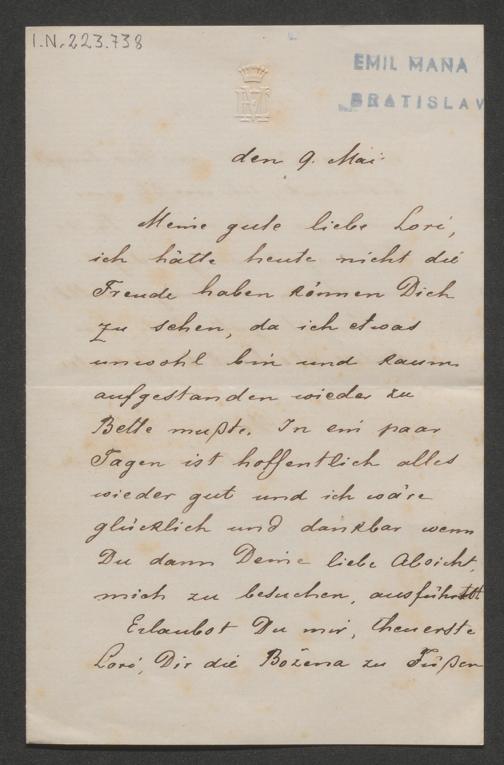 I.N. 223.738
EMIL MANA
BRATISLAV
den 9. Mai.
Meine gute liebe Lori,
ich hätte heute nicht die
Freude haben können Dich
zu sehen, da ich etwas
unwohl bin und kaum
aufgestanden wieder zu
Bette mußte. In ein paar
Tagen ist hoffentlich alles
wieder gut und ich wäre
glücklich und dankbar wenn
Du dann Deine liebe Absicht,
mich zu besuchen, ausführtest
Erlaubst Du mir, theuerste
Lori, Dir die Božena zu Füßen